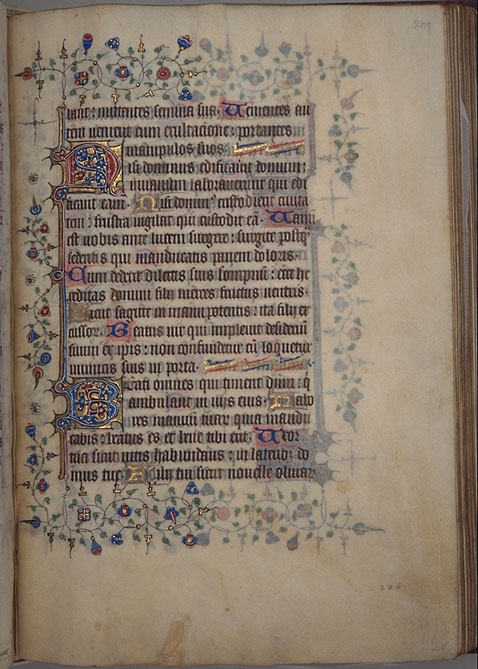 209
bant : mittentes semina sua . Uenientes au
tem uenient cum exultacione : portantes
manipulos suos
Nisi dominus edificauerit domum :
inuanum laborauerunt qui edi
ficant eam . Nisi dominus custodierit ciuita
tem : frustra uigilat qui custodit eā . Uanū
est uobis ante lucem surgere : surgite postq̄
sederitis qui manducatis panem doloris .
Cum dederit dilectis suis sompnū : ecce he
reditas domini filij merces fructus uentris .
Sicut sagitte in manu potentis : ita filij ex
cussor . Beatus uir qui impleuit desideriū
suum ex ipis : non confundetur cū loquetur
inimicis suis in porta .
Beati omnes qui timent dnm : q̄
ambulant in uijs eius . Labo
res manuū tuar quia mandu
cabis : beatus es et bene tibi erit . Uxor
tua sicut uitis habundans : in laterib3 do
mus tue . Filij tui sicut nouelle oliuar
206